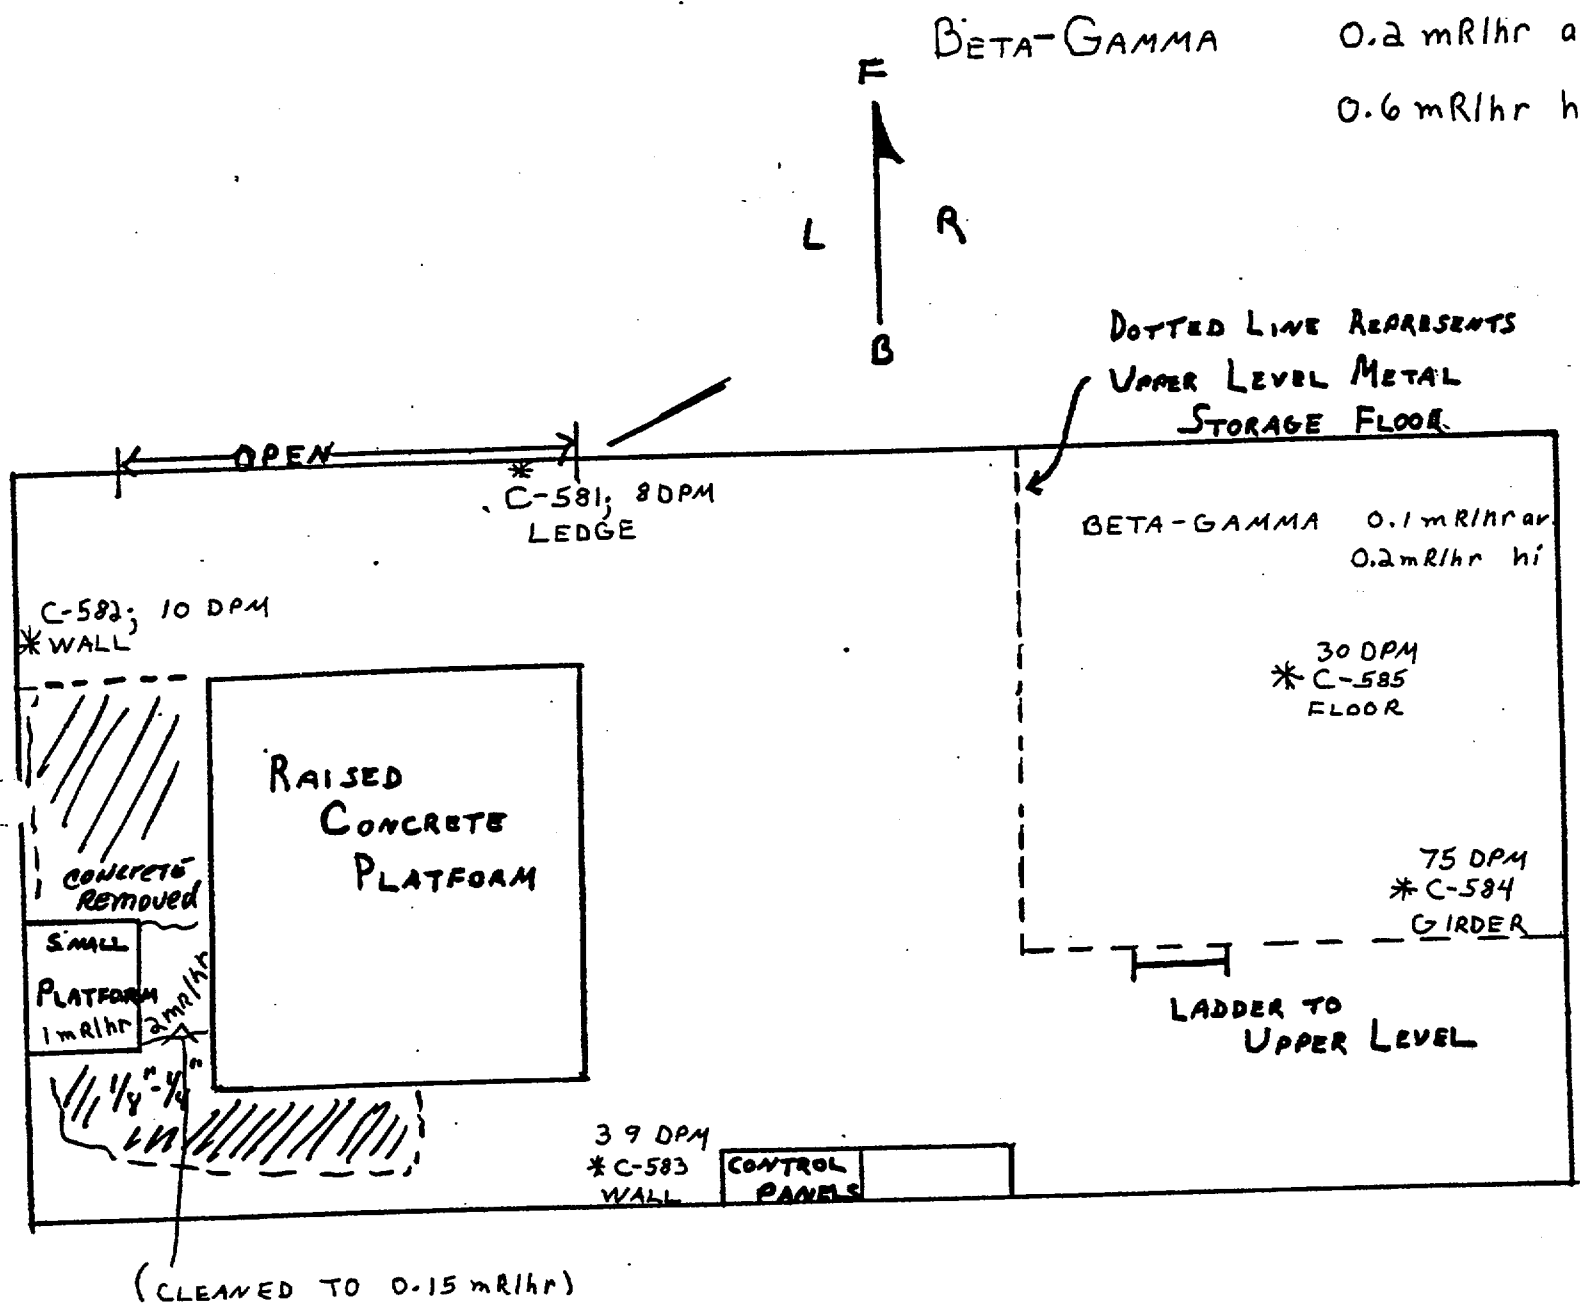 BETA-GAMMA 0.2 mR/hr a
0.6 mR/hr h
F
L R
B
DOTTED LINE REPRESENTS
UPPER LEVEL METAL
STORAGE FLOOR
OPEN
C-581; 8 DPM
LEDGE
BETA-GAMMA 0.1 mR/hr av.
0.2 mR/hr hi
C-582; 10 DPM
WALL
30 DPM
C-585
FLOOR
RAISED
CONCRETE
PLATFORM
CONCRETE
REMOVED
75 DPM
C-584
GIRDER
SMALL
PLATFORM
1 mR/hr
2 mR/hr
LADDER TO
UPPER LEVEL
39 DPM
C-583
WALL
CONTROL
PANELS
(CLEANED TO 0.15 mR/hr)